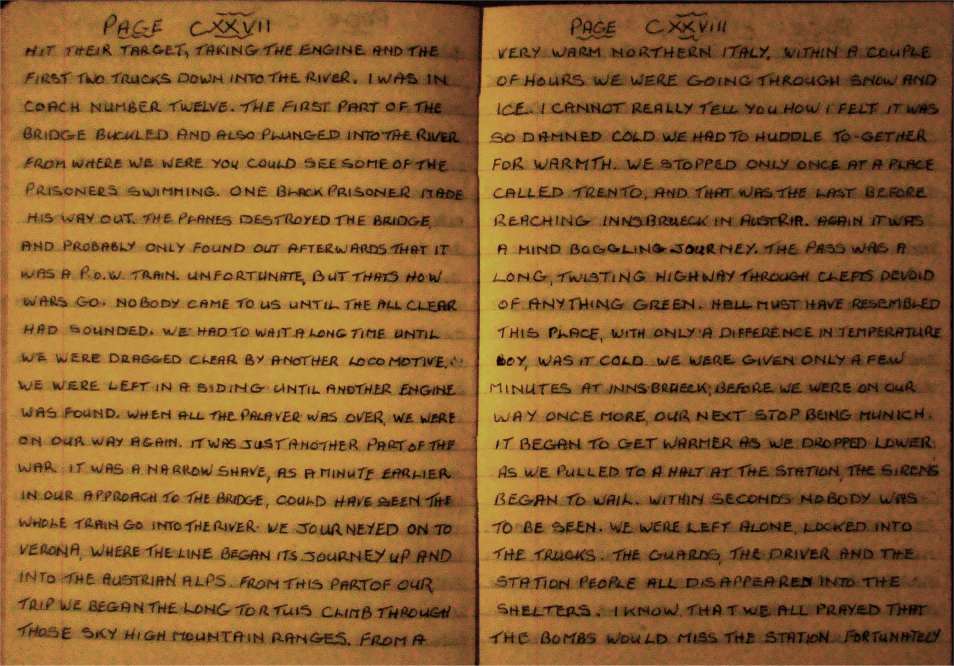 PAGE CXXVII
HIT THEIR TARGET, TAKING THE ENGINE AND THE
FIRST TWO TRUCKS DOWN INTO THE RIVER. I WAS IN
COACH NUMBER TWELVE. THE FIRST PART OF THE
BRIDGE BUCKLED AND ALSO PLUNGED INTO THE RIVER
FROM WHERE WE WERE YOU COULD SEE SOME OF THE
PRISONERS SWIMMING. ONE BLACK PRISONER MADE
HIS WAY OUT. THE PLANES DESTROYED THE BRIDGE,
AND PROBABLY ONLY FOUND OUT AFTERWARDS THAT IT
WAS A P.O.W. TRAIN. UNFORTUNATE, BUT THATS HOW
WARS GO. NOBODY CAME TO US UNTIL THE ALL CLEAR
HAD SOUNDED. WE HAD TO WAIT A LONG TIME UNTIL
WE WERE DRAGGED CLEAR BY ANOTHER LOCOMOTIVE.
WE WERE LEFT IN A SIDING UNTIL ANOTHER ENGINE
WAS FOUND. WHEN ALL THE PALAVER WAS OVER, WE WERE
ON OUR WAY AGAIN. IT WAS JUST ANOTHER PART OF THE
WAR. IT WAS A NARROW SHAVE, AS A MINUTE EARLIER
IN OUR APPROACH TO THE BRIDGE, COULD HAVE SEEN THE
WHOLE TRAIN GO INTO THE RIVER. WE JOURNEYED ON TO
VERONA, WHERE THE LINE BEGAN ITS JOURNEY UP AND
INTO THE AUSTRIAN ALPS. FROM THIS PART OF OUR
TRIP WE BEGAN THE LONG TORTUIS CLIMB THROUGH
THOSE SKY HIGH MOUNTAIN RANGES. FROM A
PAGE CXXVIII
VERY WARM NORTHERN ITALY, WITHIN A COUPLE
OF HOURS WE WERE GOING THROUGH SNOW AND
ICE. I CANNOT REALLY TELL YOU HOW I FELT IT WAS
SO DAMNED COLD WE HAD TO HUDDLE TO-GETHER
FOR WARMTH. WE STOPPED ONLY ONCE AT A PLACE
CALLED TRENTO, AND THAT WAS THE LAST BEFORE
REACHING INNSBRUECK IN AUSTRIA. AGAIN IT WAS
A MIND BOGGLING JOURNEY. THE PASS WAS A
LONG, TWISTING HIGHWAY THROUGH CLEFTS DEVOID
OF ANYTHING GREEN. HELL MUST HAVE RESEMBLED
THIS PLACE, WITH ONLY A DIFFERENCE IN TEMPERATURE
BOY, WAS IT COLD. WE WERE GIVEN ONLY A FEW
MINUTES AT INNSBRUECK, BEFORE WE WERE ON OUR
WAY ONCE MORE, OUR NEXT STOP BEING MUNICH.
IT BEGAN TO GET WARMER AS WE DROPPED LOWER.
AS WE PULLED TO A HALT AT THE STATION, THE SIRENS
BEGAN TO WAIL. WITHIN SECONDS NOBODY WAS
TO BE SEEN. WE WERE LEFT ALONE, LOCKED INTO
THE TRUCKS. THE GUARDS, THE DRIVER AND THE
STATION PEOPLE ALL DISAPPEARED INTO THE
SHELTERS. I KNOW THAT WE ALL PRAYED THAT
THE BOMBS WOULD MISS THE STATION. FORTUNATELY